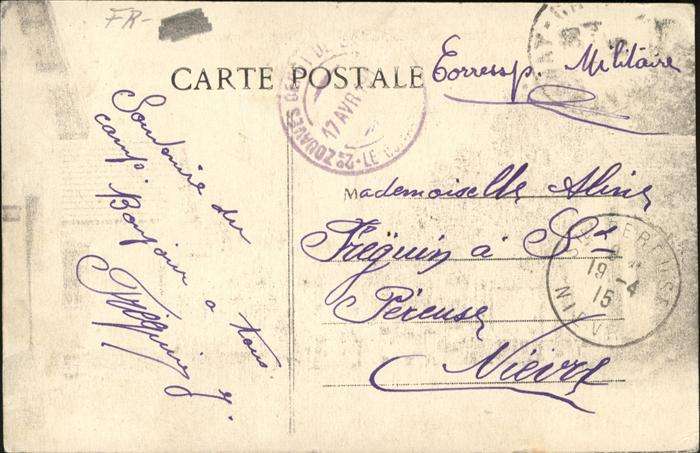 FR-
CARTE POSTALE
Corressp. Militaire
2e ZOUAVES
17 AVR
Souvenire du
camp. Bonjour a tous
Tréguin J.
Mademoiselle Aline
Tréguin à St
Péreuse
Nièvre
PEREUSE
19 -4
15
NIEV